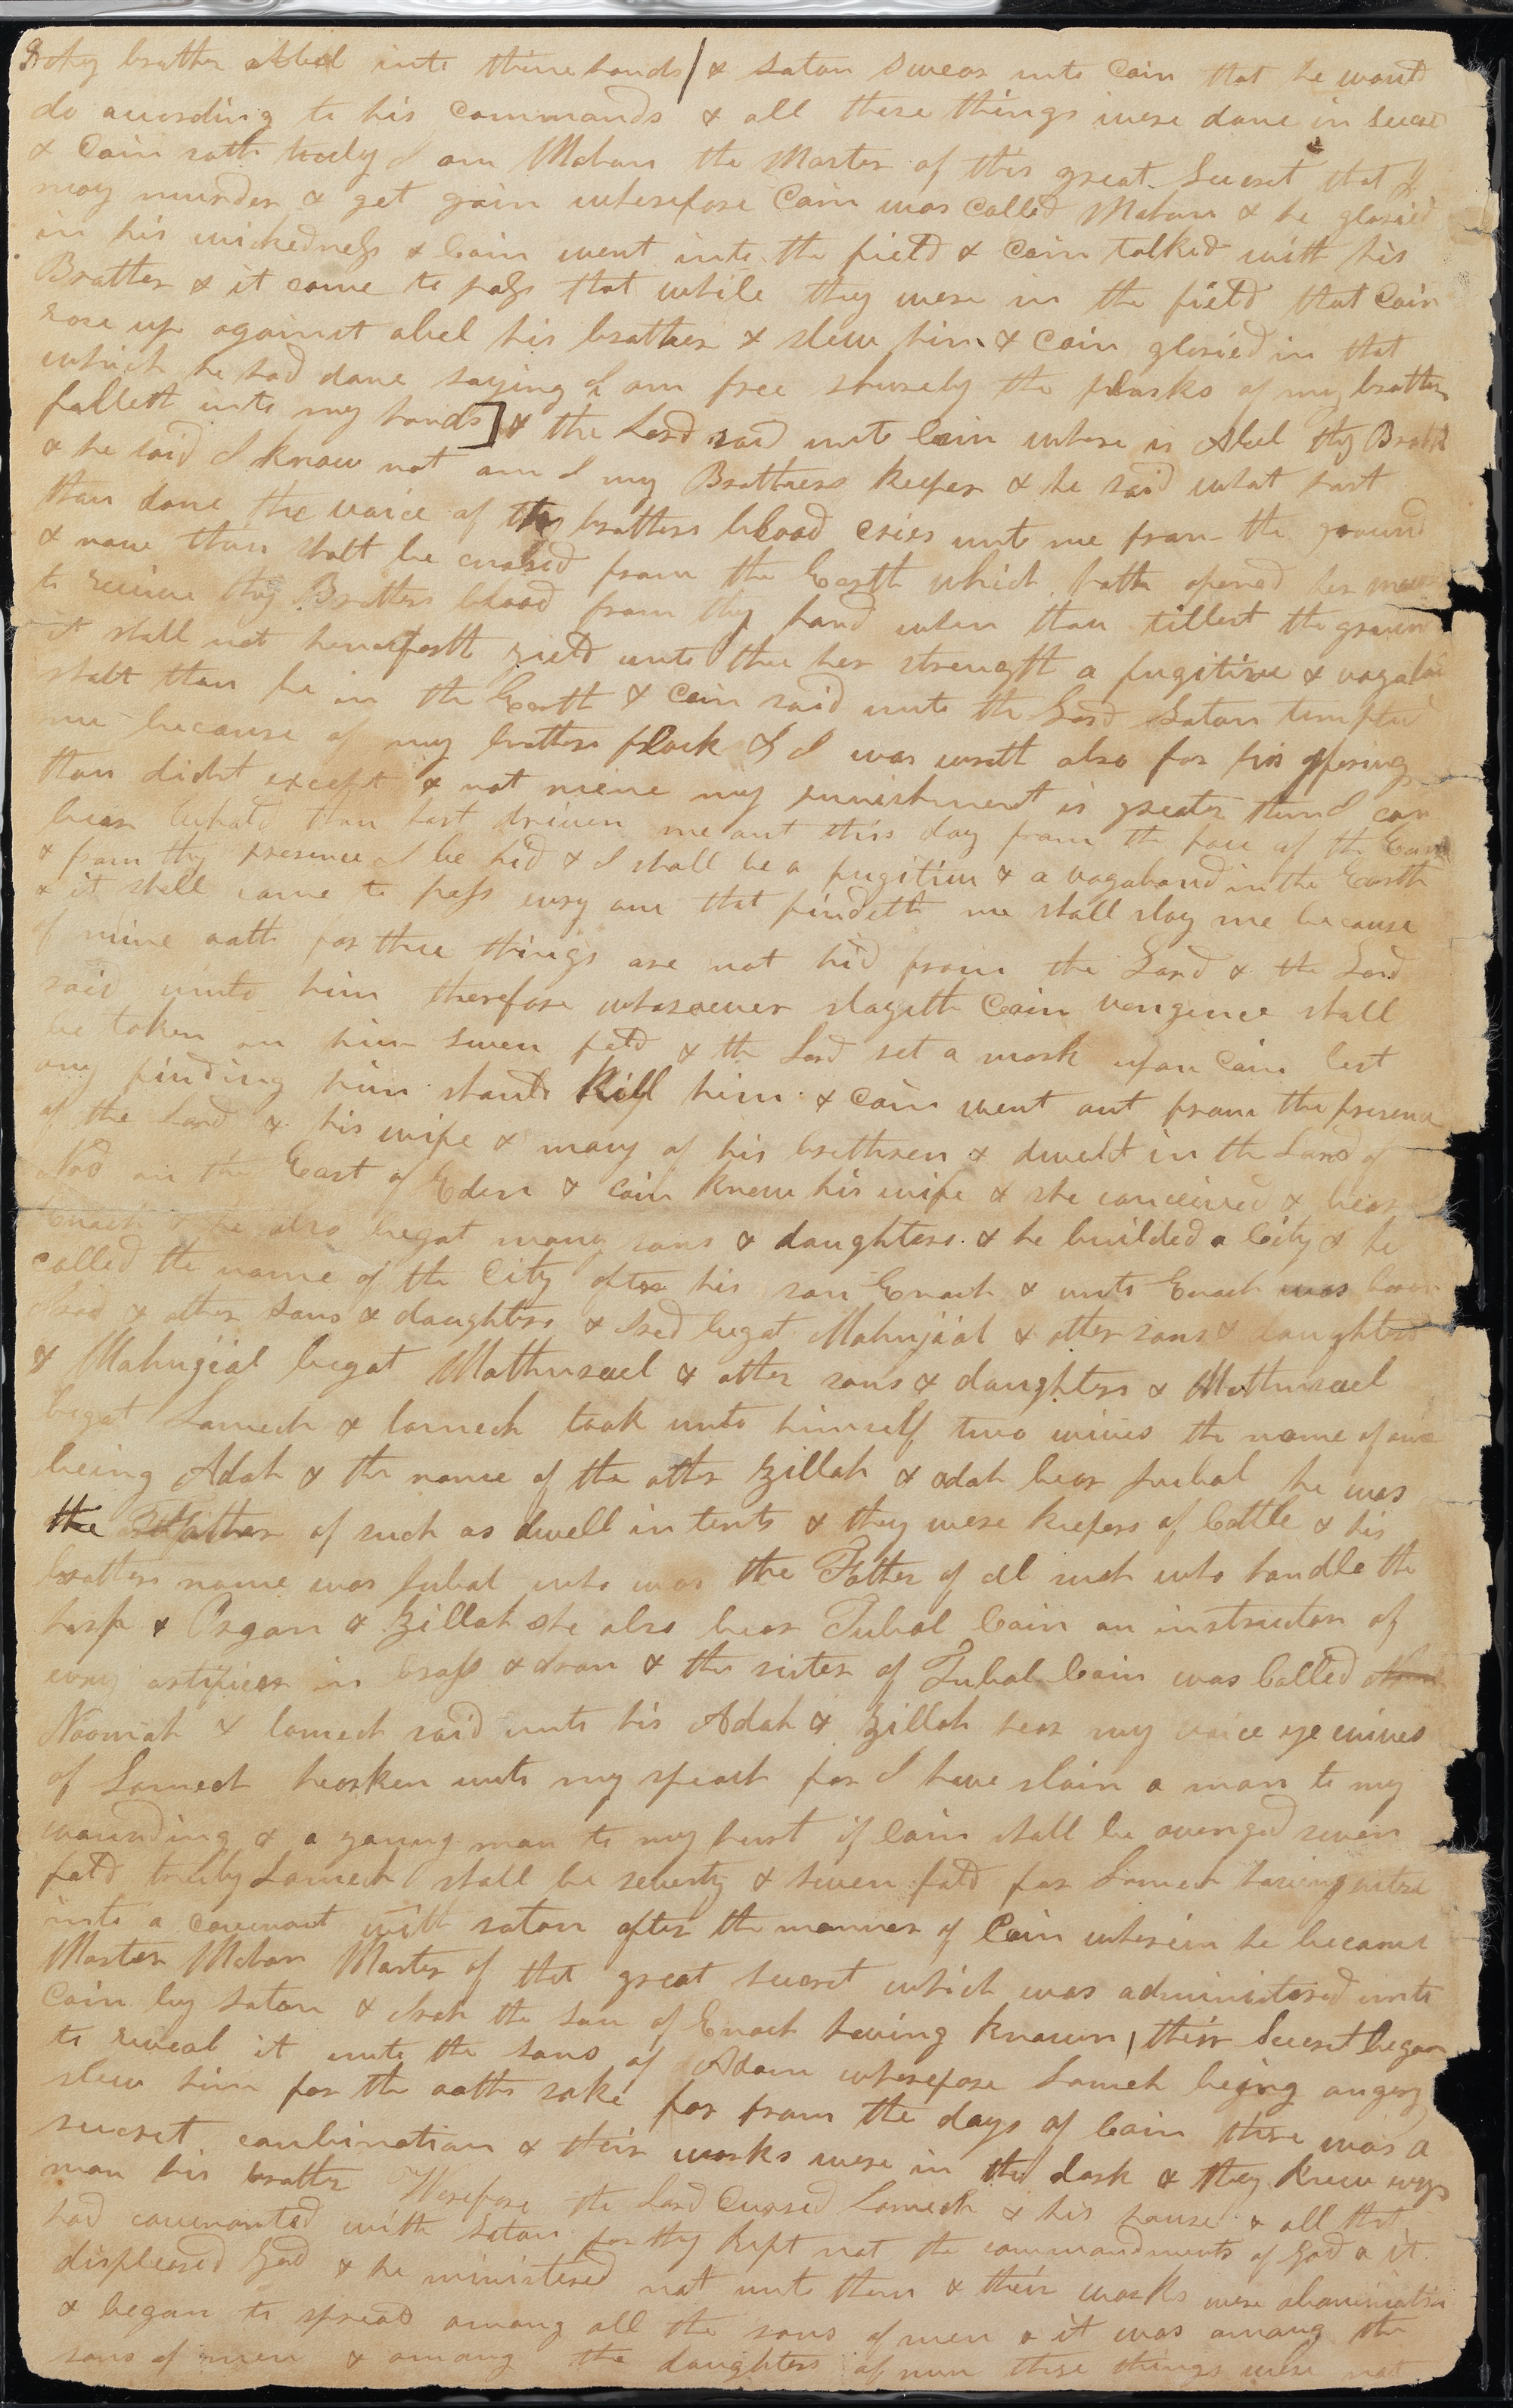 thy brother Abel into thine hands & Satan swear unto Cain that he would
do according to his commands & all these things were done in secret
& Cain sath truly I am Mahan the Master of this great Secret that I
may murder & get gain wherefore Cain was called Mahan & he gloried
in his wickedness & Cain went into the field & Cain talked with his
Brother & it came to pass that while they were in the field that Cain
rose up against abel his brother & slew him & Cain gloried in that
which he had done saying I am free shurely the flocks of my brother
falleth into my hands] & the Lord said unto Cain where is Abel thy Brother
& he said I know not am I my Brothers keeper & he said what hast
thou done the voice of thy brothers blood cries unto me from the ground
& now thou shalt be cursed from the Earth which hath opened her mouth
to receive thy Brothers blood from thy hand when thou tillest the ground
it shall not henceforth yield unto thee her strength a fugitive & vagabond
shalt thou be in the Earth & Cain said unto the Lord Satan tempted
me because of my brothers flock & I was wroth also for his offering
thou didst except & not mine my punishment is greater than I can
bear behold thou hast driven me out this day from the face of the Earth
& from thy presence I be hid & I shall be a fugitive & a vagabond in the Earth
& it shall come to pass evry one that findeth me shall slay me because
of mine oath for these things are not hid from the Lord & the Lord
said unto him therefore whosoever slayeth Cain vengence shall
be taken on him seven fold & the Lord set a mark upon Cain lest
any finding him should Kill him & Cain went out from the presence
of the Lord & his wife & many of his brethren & dwelt in the Land of
Nod on the East of Eden & Cain knew his wife & she conceived & bear
Enoch & he also begat many sons & daughters & he builded a City & he
called the name of the City after his son Enoch & unto Enoch was born
Irad & other sons & daughters & Irad begat Mahujael & other sons & daughters
& Mahujael begat Mathusael & other sons & daughters & Mathusael
begat Lamech & lamech took unto himself two wives the name of one
being Adah & the name of the other Zillah & adah bear Jubal he was
the Father of such as dwell in tents & they were keepers of Cattle & his
brothers name was Jubal who was the Father of all such who handle the
harp & Organ & Zillah she also bear Tubal Cain an instructor of
evry artificer in brass & iron & the sister of Tubal Cain was Called
Naomah & lamech said unto his Adah & Zillah hear my voice ye wives
of Lamech hearken unto my speach for I have slain a man to my
wounding & a young man to my hurt if Cain shall be avenged seven
fold truly Lamech shall be seventy & seven fold for Lamech having entered
into a covenant with satan after the manner of Cain wherein he became
Master Mahan Master of that great Secret which was administered unto
Cain by Satan & Irah the son of Enoch having known their Secret began
to reveal it unto the sons of Adam wherefore Lameh being angery
slew him for the oaths sake for from the days of Cain there was a
secret combination & their works were in the dark & they knew evry
man his brother Wherefore the Lord Cursed Lamech & his house & all that
had covenanted with Satan for they kept not the commandments of God & it
displeased God & he ministered not unto them & their works were abominations
& began to spread among all the sons of men & it was among the
sons of men & among the daughters of men these things were not